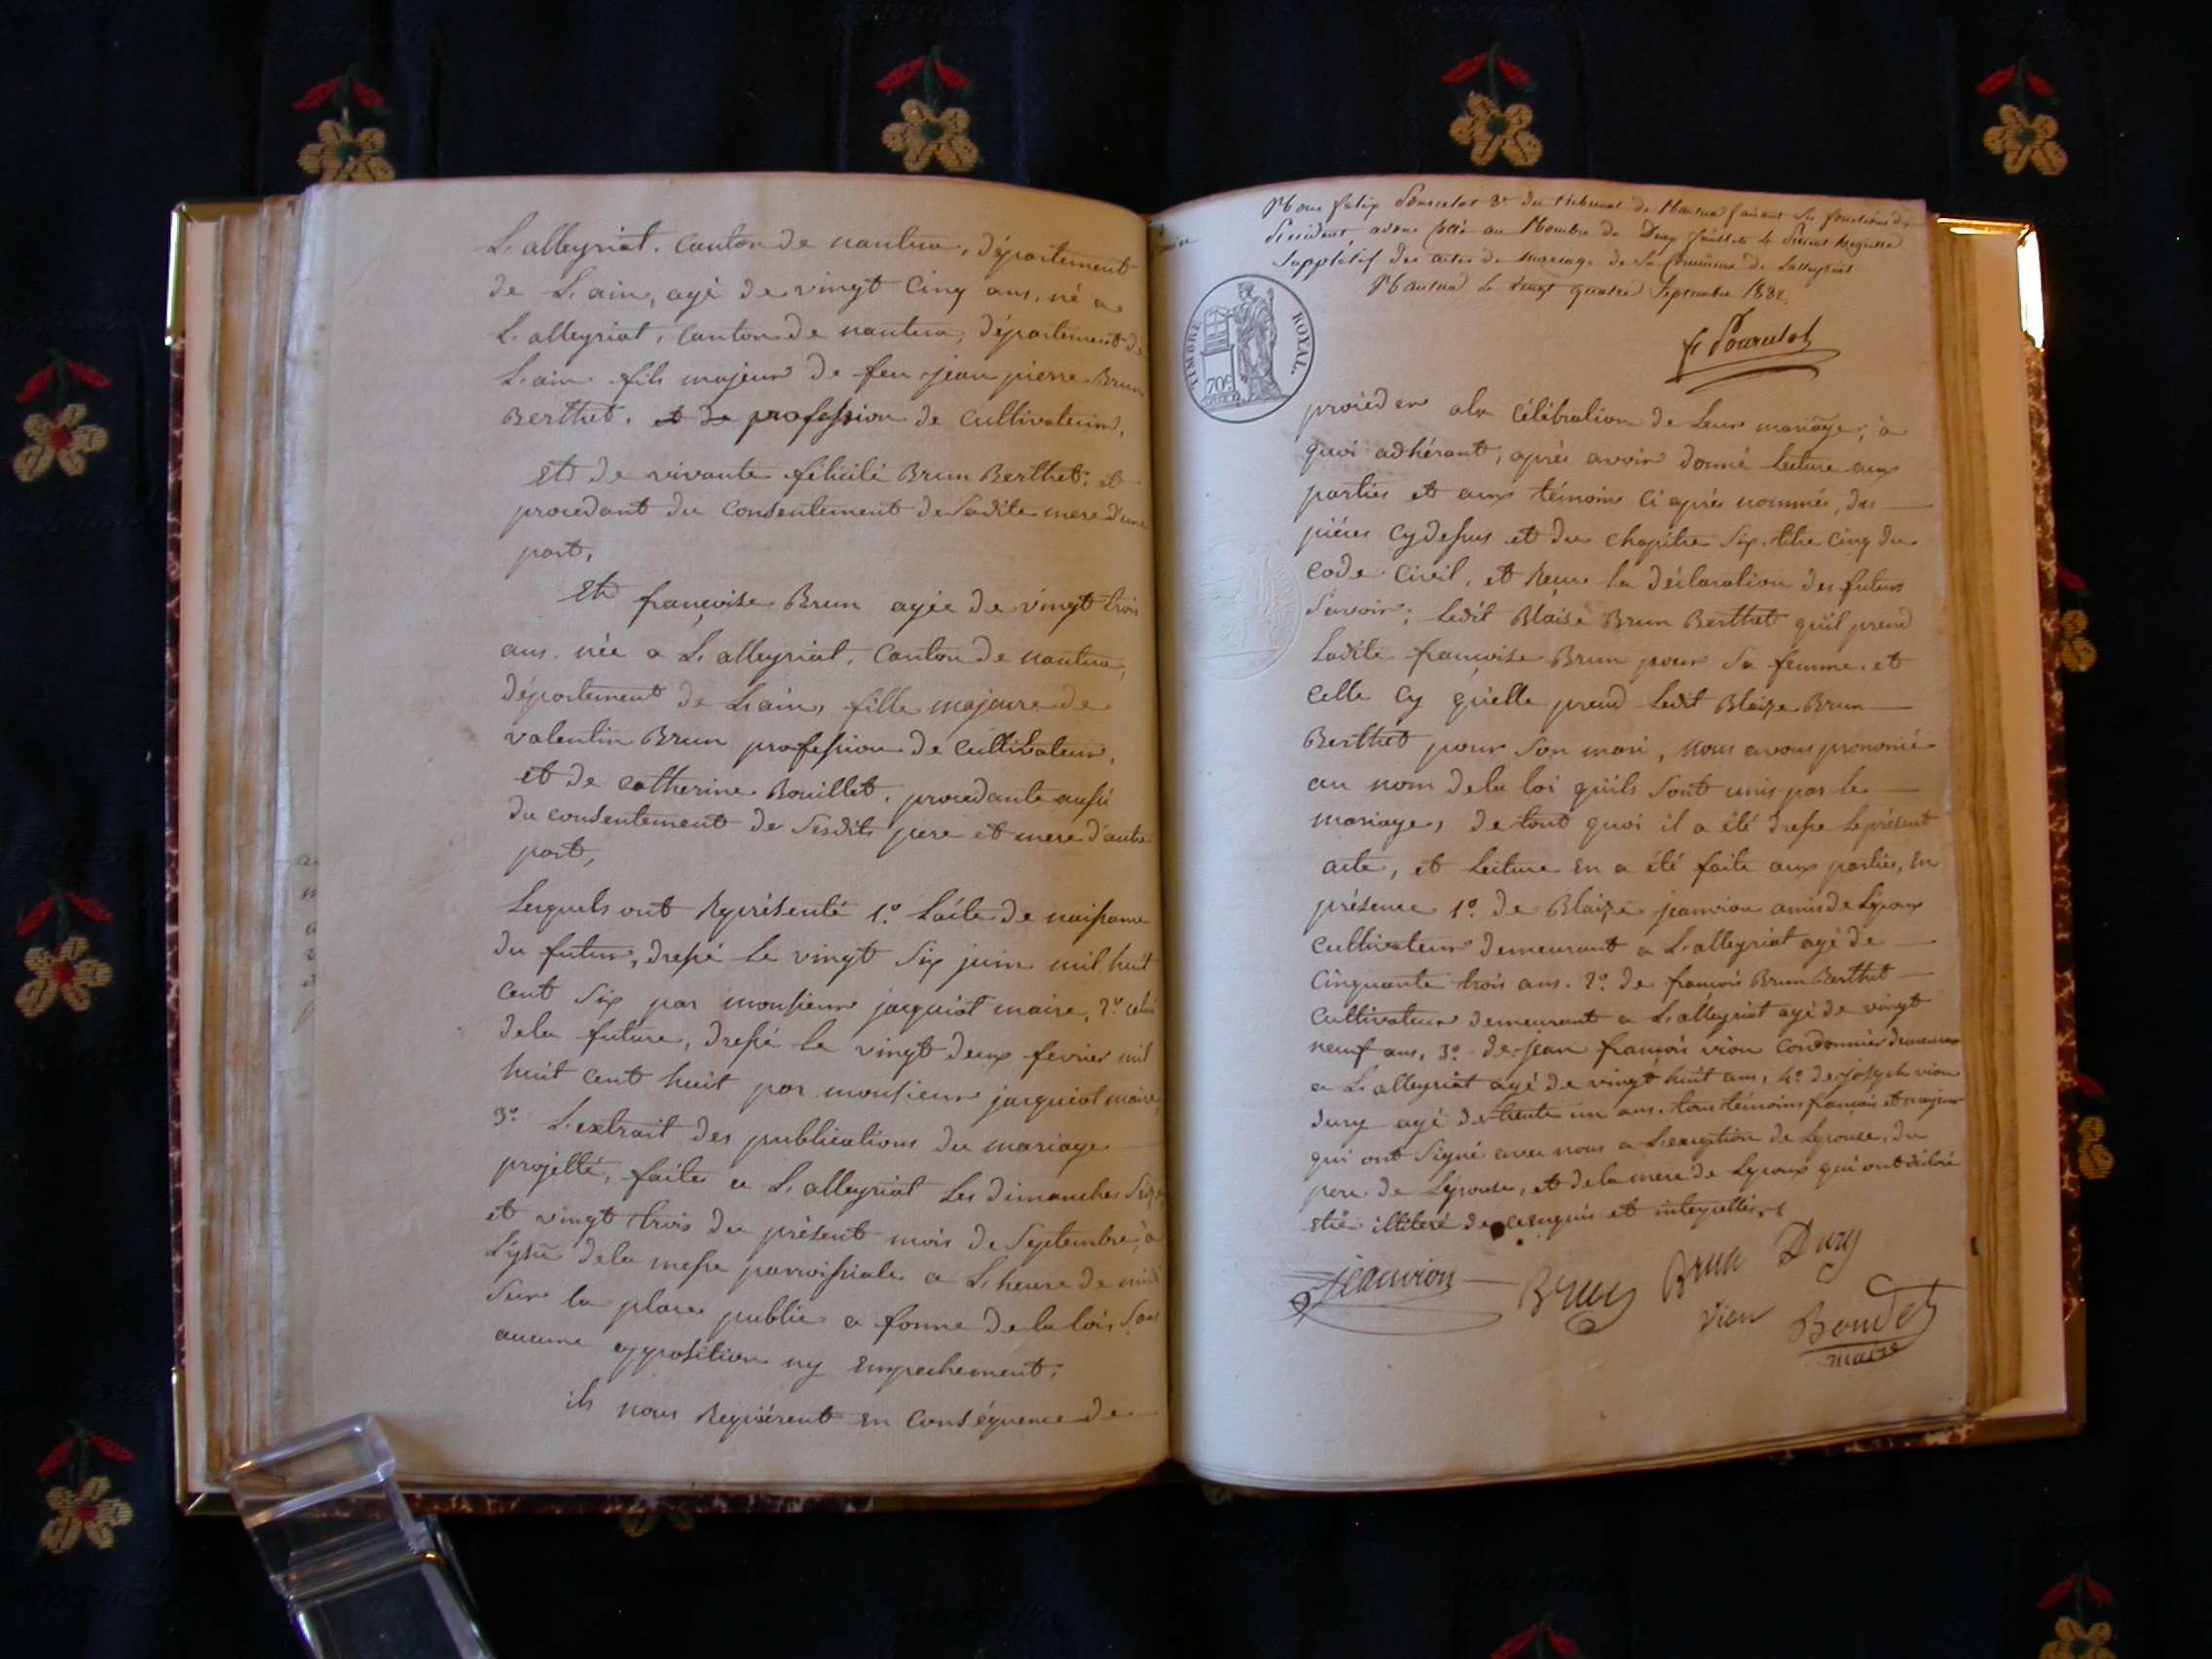 L'alleyriat. Canton de nantua, département
de L'ain, agé de vingt Cinq ans, né a
L'alleyriat, Canton de nantua, département de
L'ain fils majeur de feu jean pierre Brun
Berthet. et de profession de Cultivateur,
Et de vivante félicité Brun Berthet. et
procedant du Consentement de Sadite mere d'une
part,
Et françoise Brun agée de vingt trois
ans. née a L'alleyriat, Canton de nantua,
département de L'ain, fille majeure de
valentin Brun profession de Cultibateur,
et de Catherine Bouillet, procedante aussi
du consentement de Sesdits pere et mere d'autre
part,
Lesquels ont Représenté 1.° L'acte de naissance
du futur, dressé le vingt Six juin mil huit
Cent Six par monsieur jacquiot maire, 2.° celui
dela future, dressé le vingt deux fevrier mil
huit cent huit par monsieur jacquiot maire,
3.° L'extrait des publications du mariage
projetté, faites a L'alleyriat Les dimanches Seize
et vingt trois du présent mois de Septembre, à
L'yssue dela messe parroissiale a L'heure de midi
Sur la place public a forme de la loi, Sans
aucune opposition ny Empechement,
ils nous Requièrent En Conséquence de
Nous felix Pourcelot du tribunal de Nantua faisant les fonctions de
Président, avons au Nombre de Deux feuillets le Présent Registre
Supplétif des actes de mariage de la Commune de Lalleyriat
Nantua le vingt quatre Septembre
f. Pourcelot
TIMBRE ROYAL.
70c
procéder a la Célébration de Leur mariage; à
quoi adhérant, après avoir donné Lecture aux
parties et aux témoins Ci après nommés, des
pièces Cydessus et du Chapitre Six. titre Cinq du
Code Civil, et Reçu la déclaration des futurs
Savoir; Ledit Blaise Brun Berthet qu'il prend
Ladite françoise Brun pour Sa femme. et
Celle Cy qu'elle prend Ledit Blaize Brun
Berthet pour Son mari, Nous avons prononcé
au nom dela loi qu'ils Sont unis par le
mariage, de tout quoi il a été dressé Le présent
acte, et Lecture En a été faite aux parties, En
présence 1.° de Blaize jeanvion amis de L'epoux
Cultivateur demeurant a L'alleyriat agé de
Cinquante trois ans. 2.° de françois Brun Berthet
Cultivateur demeurant a L'alleyriat agé de vingt
neuf ans, 3.° de jean françois vion Cordonnier demeurant
a L'alleyriat agé de vingt huit ans, 4.° de joseph vion
dury agé de trente un ans. tous témoins français et majeurs
qui ont Signé avec nous a L'exception de Lepouse, du
pere de L'épouse, et dela mere de Lepoux qui ont déclaré
Etre illiteré de ce enquis et interpellés
jeanvion Brun Brun Dury
vion Boudet
maire